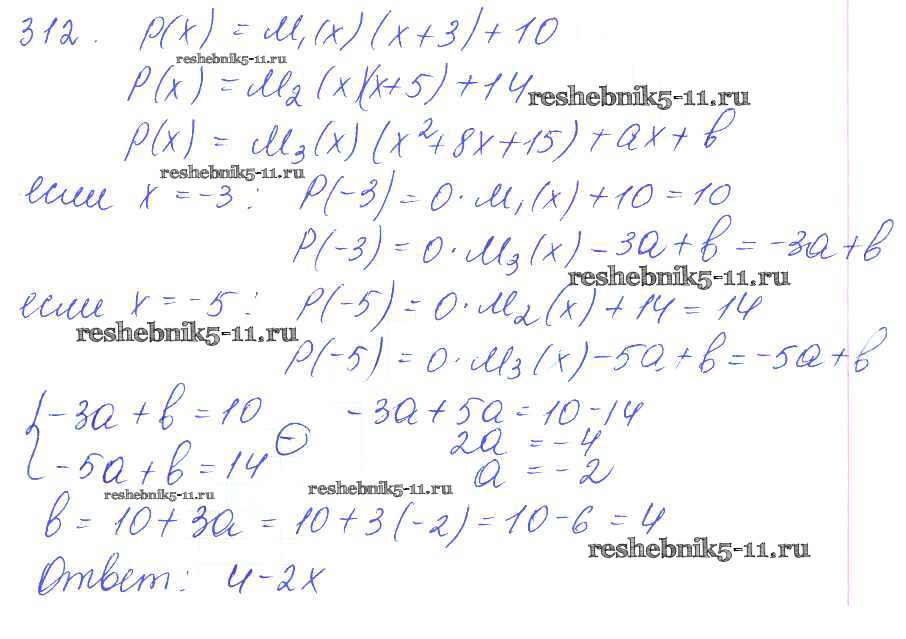 312. P(x) = M₁(x)(x+3)+10
reshebnik5-11.ru
P(x) = M₂(x)(x+5)+14
reshebnik5-11.ru
P(x) = M₃(x)(x²+8x+15)+ax+b
reshebnik5-11.ru
если x = -3: P(-3) = 0·M₁(x)+10 = 10
P(-3) = 0·M₃(x)-3a+b = -3a+b
reshebnik5-11.ru
если x = -5: P(-5) = 0·M₂(x)+14 = 14
reshebnik5-11.ru
P(-5) = 0·M₃(x)-5a+b = -5a+b
{ -3a+b = 10 -3a+5a = 10-14
⊖ 2a = -4
-5a+b = 14 a = -2
reshebnik5-11.ru reshebnik5-11.ru
b = 10+3a = 10+3(-2) = 10-6 = 4
reshebnik5-11.ru
Ответ: 4-2x